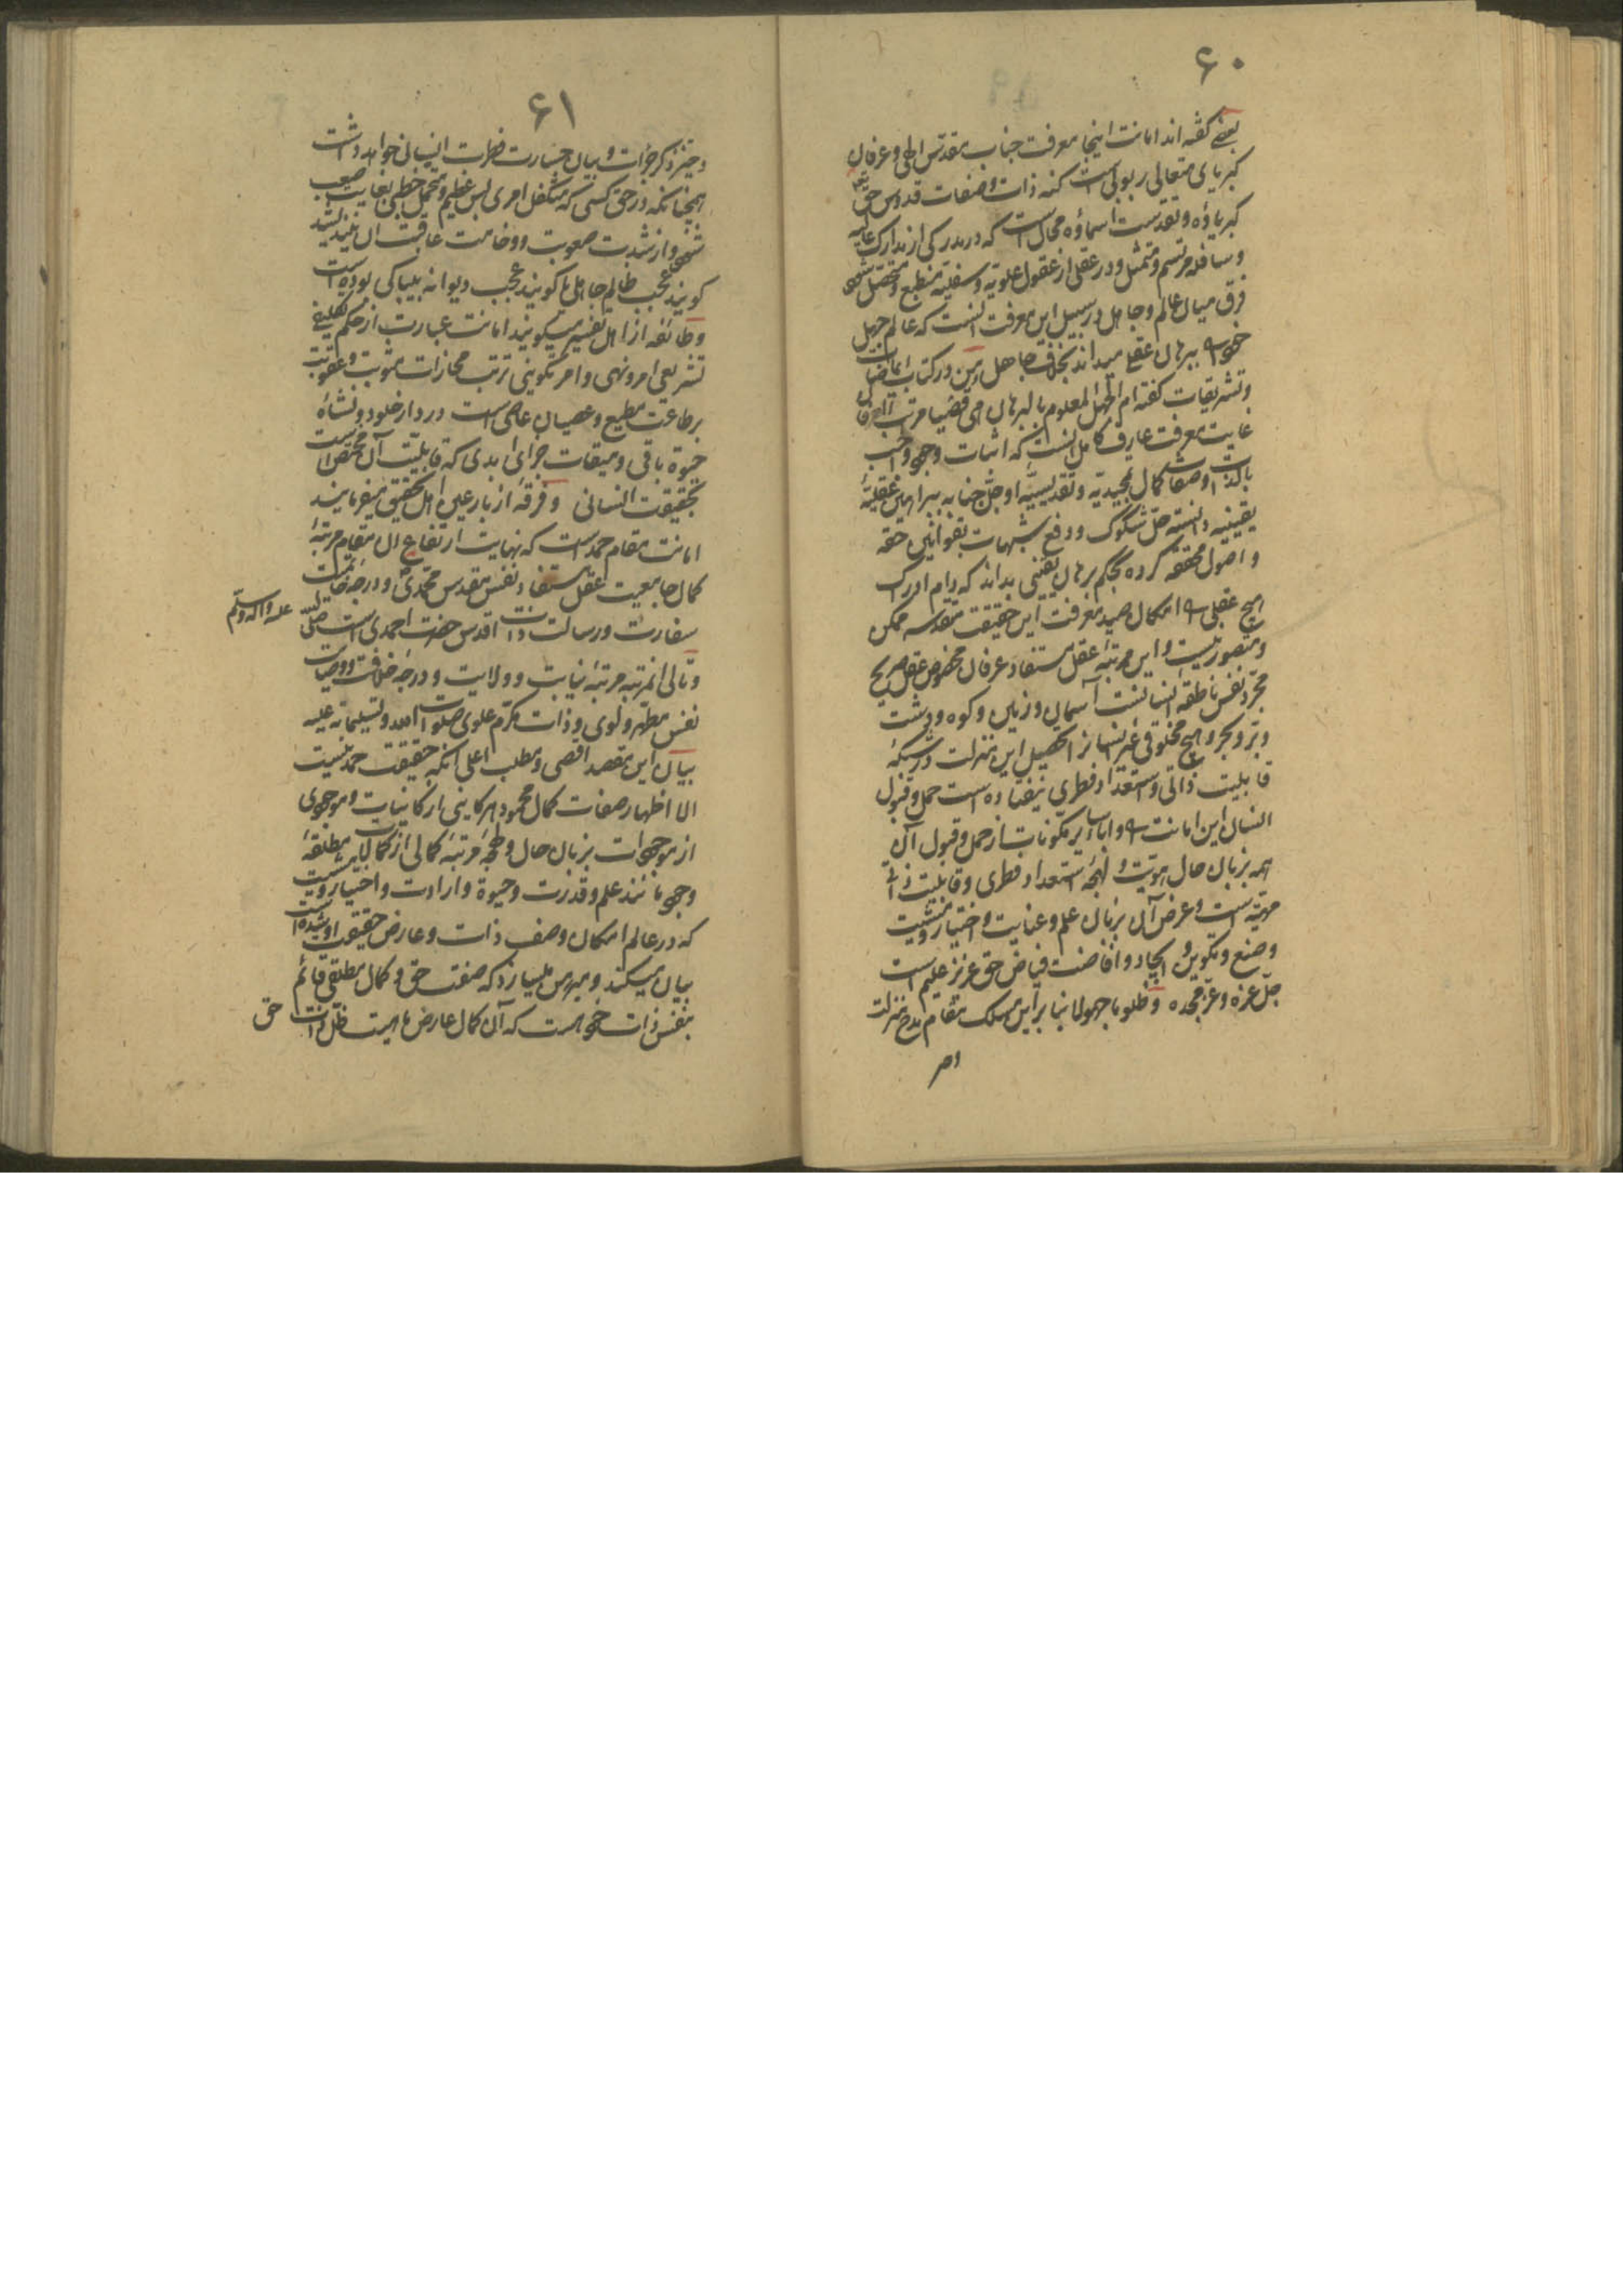 ۶۰
بعضی گفته اند امانت اینجا معرفت جناب مقدّس الهی و عرفان
کبریای متعالی ربوبی است کنه ذات و صفات قدوس حق تعه
کبریاؤه و تقدست اسماؤه محال است که در مدرکی از مدارک عالیه
و سافله مرتسم و متمثل و در عقلی از عقول علویّه و سفلیّه منطبع و متحصّل شود
فرق میان عالم و جاهل در سبیل این معرفت آنست که عالم جهل
خود را ببرهان عقلی میداند بخلاف جاهل و من در کتاب ایماضات
و تشریقات گفته ام الجهل المعلوم بالبرهان
غایت معرفت عارف کامل آنست که اثبات وجود واجب
بالذات و صفات کمال تمجیدیّه و تقدیسیّه او جلّ جنابه ببراهین عقلیّه
یقینیه دانسته حلّ شکوک و دفع شبهات بقوانین حقه
و اصول محققه کرده بحکم برهان یقینی بداند که دام ادراک
هیچ عقلی را امکان صید معرفت این حقیقت مقدسه ممکن
و متصور نیست و این مرتبهٔ عقل مستفاد و عرفان مخصوص عقل صریح
مجرّد نفس ناطقهٔ انسانست آسمان و زمین و کوه و دشت
و برّ و بحر و هیچ مخلوقی غیر انسانرا تحصیل این منزلت در سکهٔ
قابلیت ذاتی و استعداد فطری نیفتاده است حمل و قبول
انسان این امانت را و اباء سایر مکونات از حمل و قبول آن
همه بزبان حال هویّت و لهجهٔ استعداد فطری و قابلیت ذاتی
مهیّه است و عرض آن بزبان علم و عنایت و اختیار و مشیت
و صنع و تکوین و ایجاد و افاضت فیاض حق عزیز علیم است
جلّ عزه و عزّ مجده و ظلوما جهولا بنا برین مسلک مقام مدح منزلت
۶۱
و حیز ذکر جرأت و بیان جسارت فطرت انسانی خواهد داشت
همچنانکه در حق کسی که متکفل امری بس عظیم و متحمل خطبی بغایت صعب
شود و از شدت صعوبت و وخامت عاقبت آن نیندیشد
گویند عجب ظالم جاهلی یا گویند عجب دیوانه بیباکی بوده است
و طائفه از اهل تفسیر میگویند امانت عبارت از حکم تکلیفی
تشریعی امر و نهی و امر تکوینی ترتب مجازات مثوبت و عقوبت
بر طاعت مطیع و عصیان عاصی است در دار خلود و نشاهٔ
حیوة باقی و میقات جزای ابدی که قابلیّت آن مختص است
بحقیقت انسانی و فرقهٔ از بارعین اهل تحقیق میفرمایند
امانت مقام حمد است که نهایت ارتفاع آن مقام مرتبهٔ
کمال جامعیت عقل مستفاد نفس مقدس محمّدی و درجهٔ خاتمیت
سفارت و رسالت ذات اقدس حضرت احمدی است صلّی الله علیه و آله و سلّم
و تالی آنمرتبه مرتبهٔ نیابت و ولایت و درجهٔ خلافت و وصایت
نفس مطهّر و ذات مکرّم علوی صلوات الله و تسلیماته علیه
بیان این مقصد اقصی و مطلب اعلی آنکه حقیقت حمد نیست
الا اظهار صفات کمال محمود هر کاینی از کاینات و موجودی
از موجودات بزبان حال و لهجهٔ مرتبهٔ کمالی از کمالات مطلقهٔ
وجود مانند علم و قدرت و حیوة و ارادت و اختیار و مشیت
که در عالم امکان وصف ذات و عارض حقیقت او شده است
بیان میکند و مبرهن میسازد که صفت حق و کمال مطلقی قائم
بنفس ذات خود هست که آن کمال عارض ماهیت ظلّ ذات حق